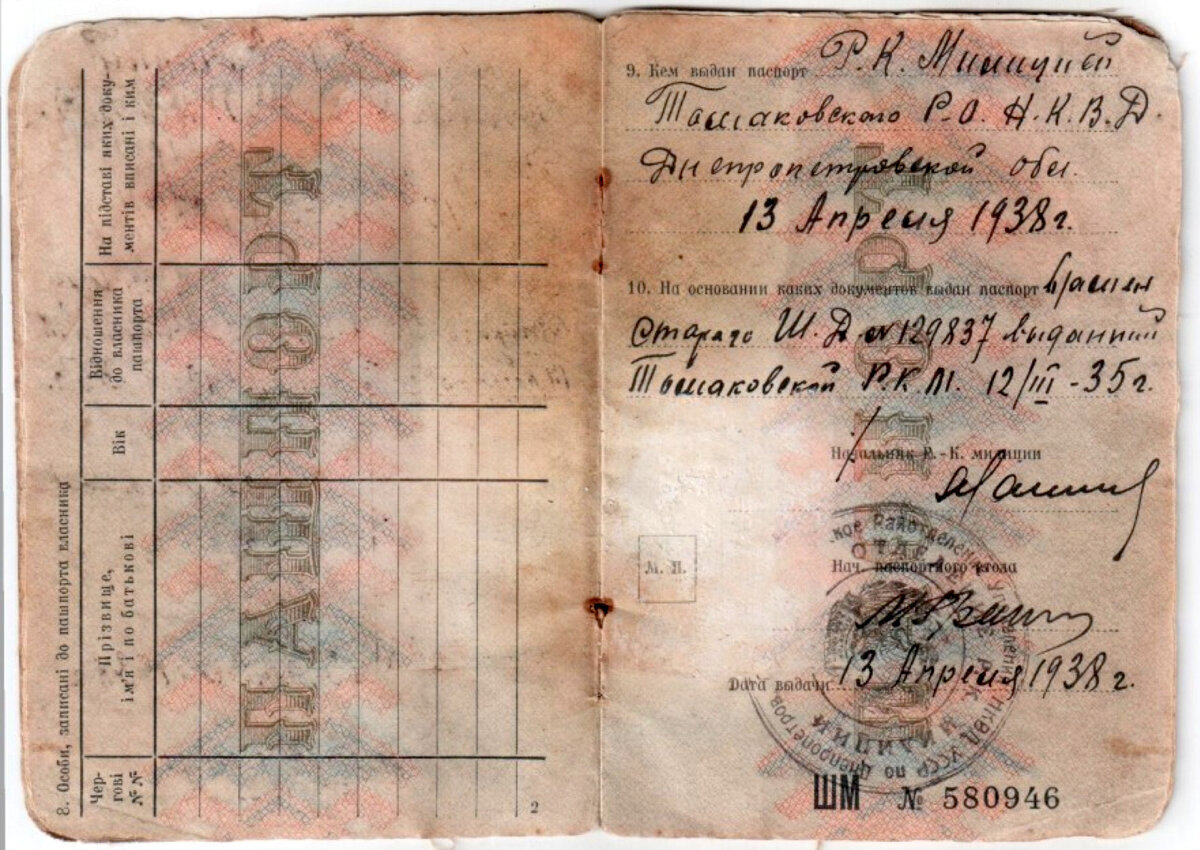 8. Особи, записані до пашпорта власника
Чергові №№
Прізвище, ім'я і по батькові
Вік
Відношення до власника пашпорта
На підставі яких документів вписані і ким
ПАШПОРТ
2
9. Кем выдан паспорт Р.К. Милиций
Томаковского Р.О. Н.К.В.Д.
Днепропетровской обл.
13 Апреля 1938 г.
10. На основании каких документов выдан паспорт взамен
старого Ш.Д. № 129837 выданный
Томаковской Р.К.М. 12/III - 35 г.
Начальник Р.-К. милиции
М. П.
Нач. паспортного стола
Дата выдачи 13 Апреля 1938 г.
ШМ № 580946